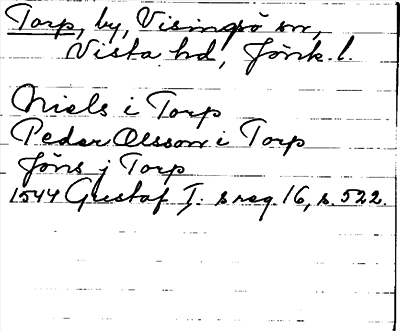 Torp, by, Visingsö sn,
Vista hd, Jönk. l.
Niels i Torp
Peder Olsson i Torp
Jöns j Torp
1544 Gustaf I:s reg. 16, s. 522.